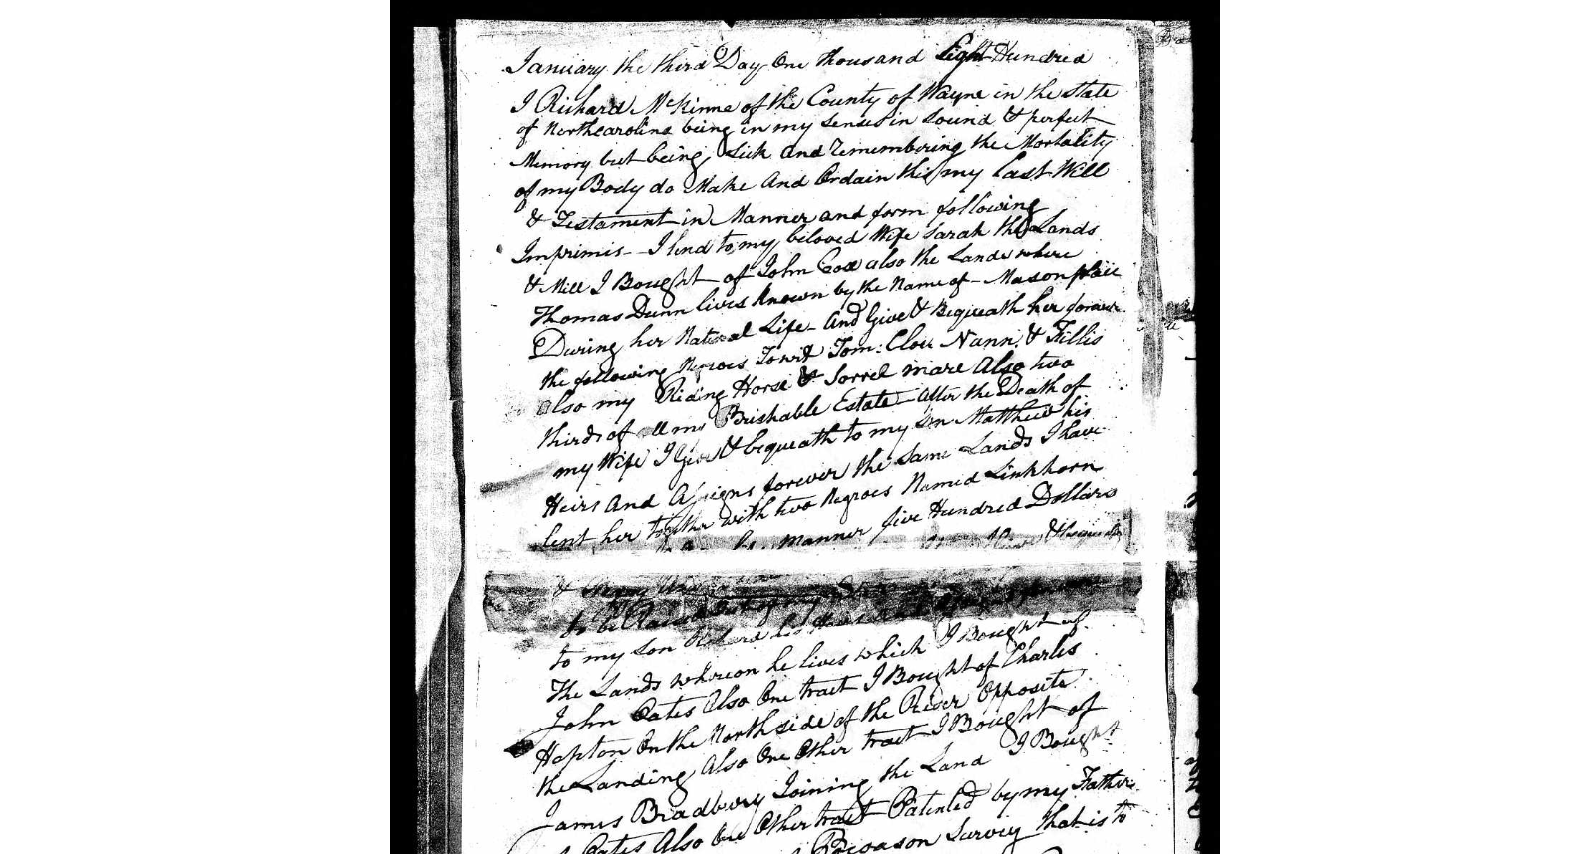 January the third Day One thousand Eight Hundred
I Richard McKinne of the County of Wayne in the State
of Northcarolina being in my senses in Sound & perfect
Memory but being Sick and Remembering the Mortality
of my Body do Make And Ordain this my Last Will
& Testament in Manner and form following
Imprimis - I lend to my beloved Wife Sarah the Lands
& Mill I Bought of John Cox also the Lands where
Thomas Dunn lives known by the Name of Mason place
During her Natural Life - And Give & Bequeath her forever
the following Negroes Towit Tom: Cloe Nann, & Fillis
also my Riding Horse & Sorrel mare Also two
thirds of all my Perishable Estate - After the Death of
my Wife I Give & bequeath to my Son Matthew his
Heirs And Assigns forever the Same Lands I have
lent her together with two Negroes Named Linkhorn
manner five Hundred Dollars
&
to be Raised out of my
to my Son Richard his Heirs and
The Lands whereon he lives which I Bought of
John Cates Also One tract I Bought of Charles
Hopton On the North side of the River Opposite
the Landing Also One Other tract I Bought of
James Bradbury Joining the Land I Bought
Cates Also One Other tract Patented by my Father
Survey that is to